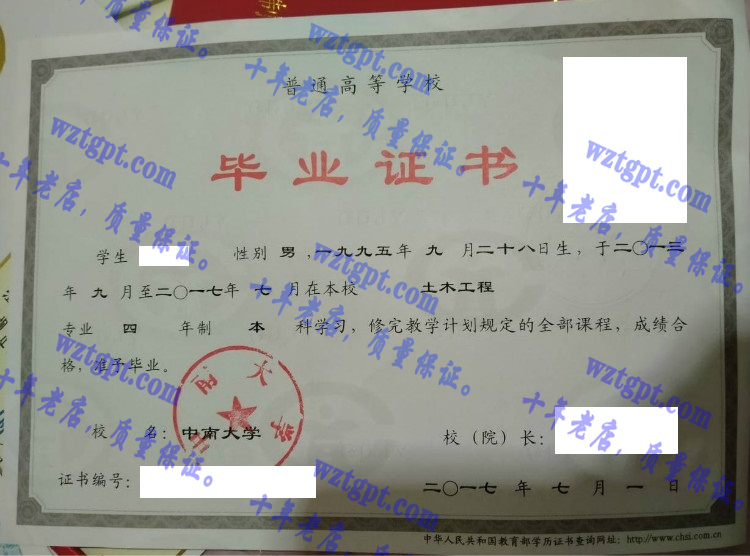 普通高等学校
毕业证书
学生 性别 男 ,一九九五年 九 月二十八日生，于二〇一三
年 九 月至二〇一七年 七 月在本校 土木工程
专业 四 年制 本 科学习，修完教学计划规定的全部课程，成绩合
格，准予毕业。
南大学
校 名：中南大学 校（院）长：
证书编号：
二〇一七 年 七 月 一 日
中华人民共和国教育部学历证书查询网址：http://www.chsi.com.cn
wztgpt.com
十年老店，质量保证。
wztgpt.com
十年老店，质量保证。
wztgpt.com
十年老店，质量保证。
wztgpt.com
十年老店，质量保证。
wztgpt.com
十年老店，质量保证。
wztgpt.com
十年老店，质量保证。
wztgpt.com
十年老店，质量保证。
wztgpt.com
十年老店，质量保证。
wztgpt.com
十年老店，质量保证。